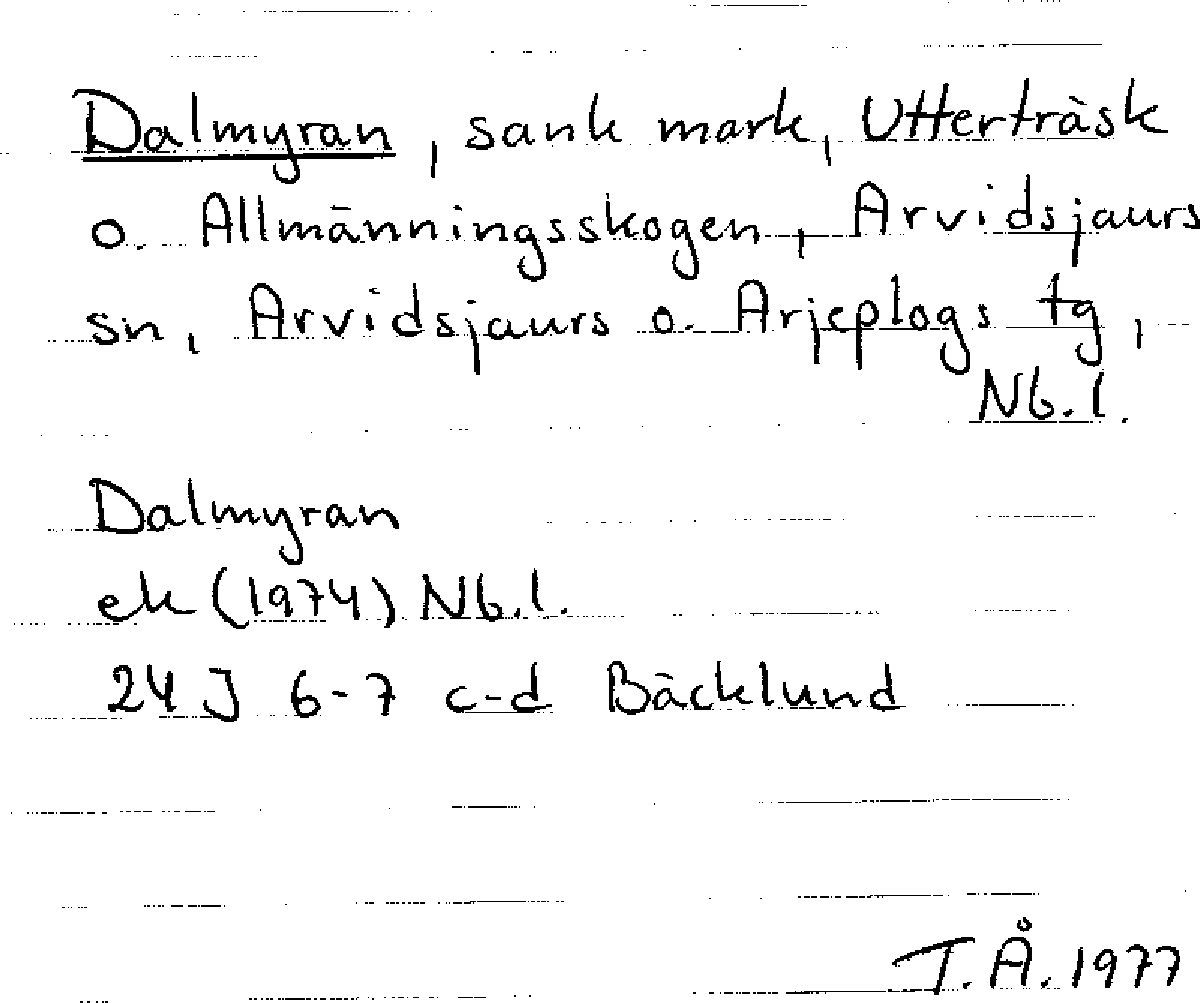 Dalmyran, sank mark, Utterträsk
o. Allmänningsskogen, Arvidsjaurs
sn, Arvidsjaurs o. Arjeplogs tg,
Nb.l.
Dalmyran
ek (1974) Nb.l.
24 J 6-7 c-d Bäcklund
T.Å. 1977